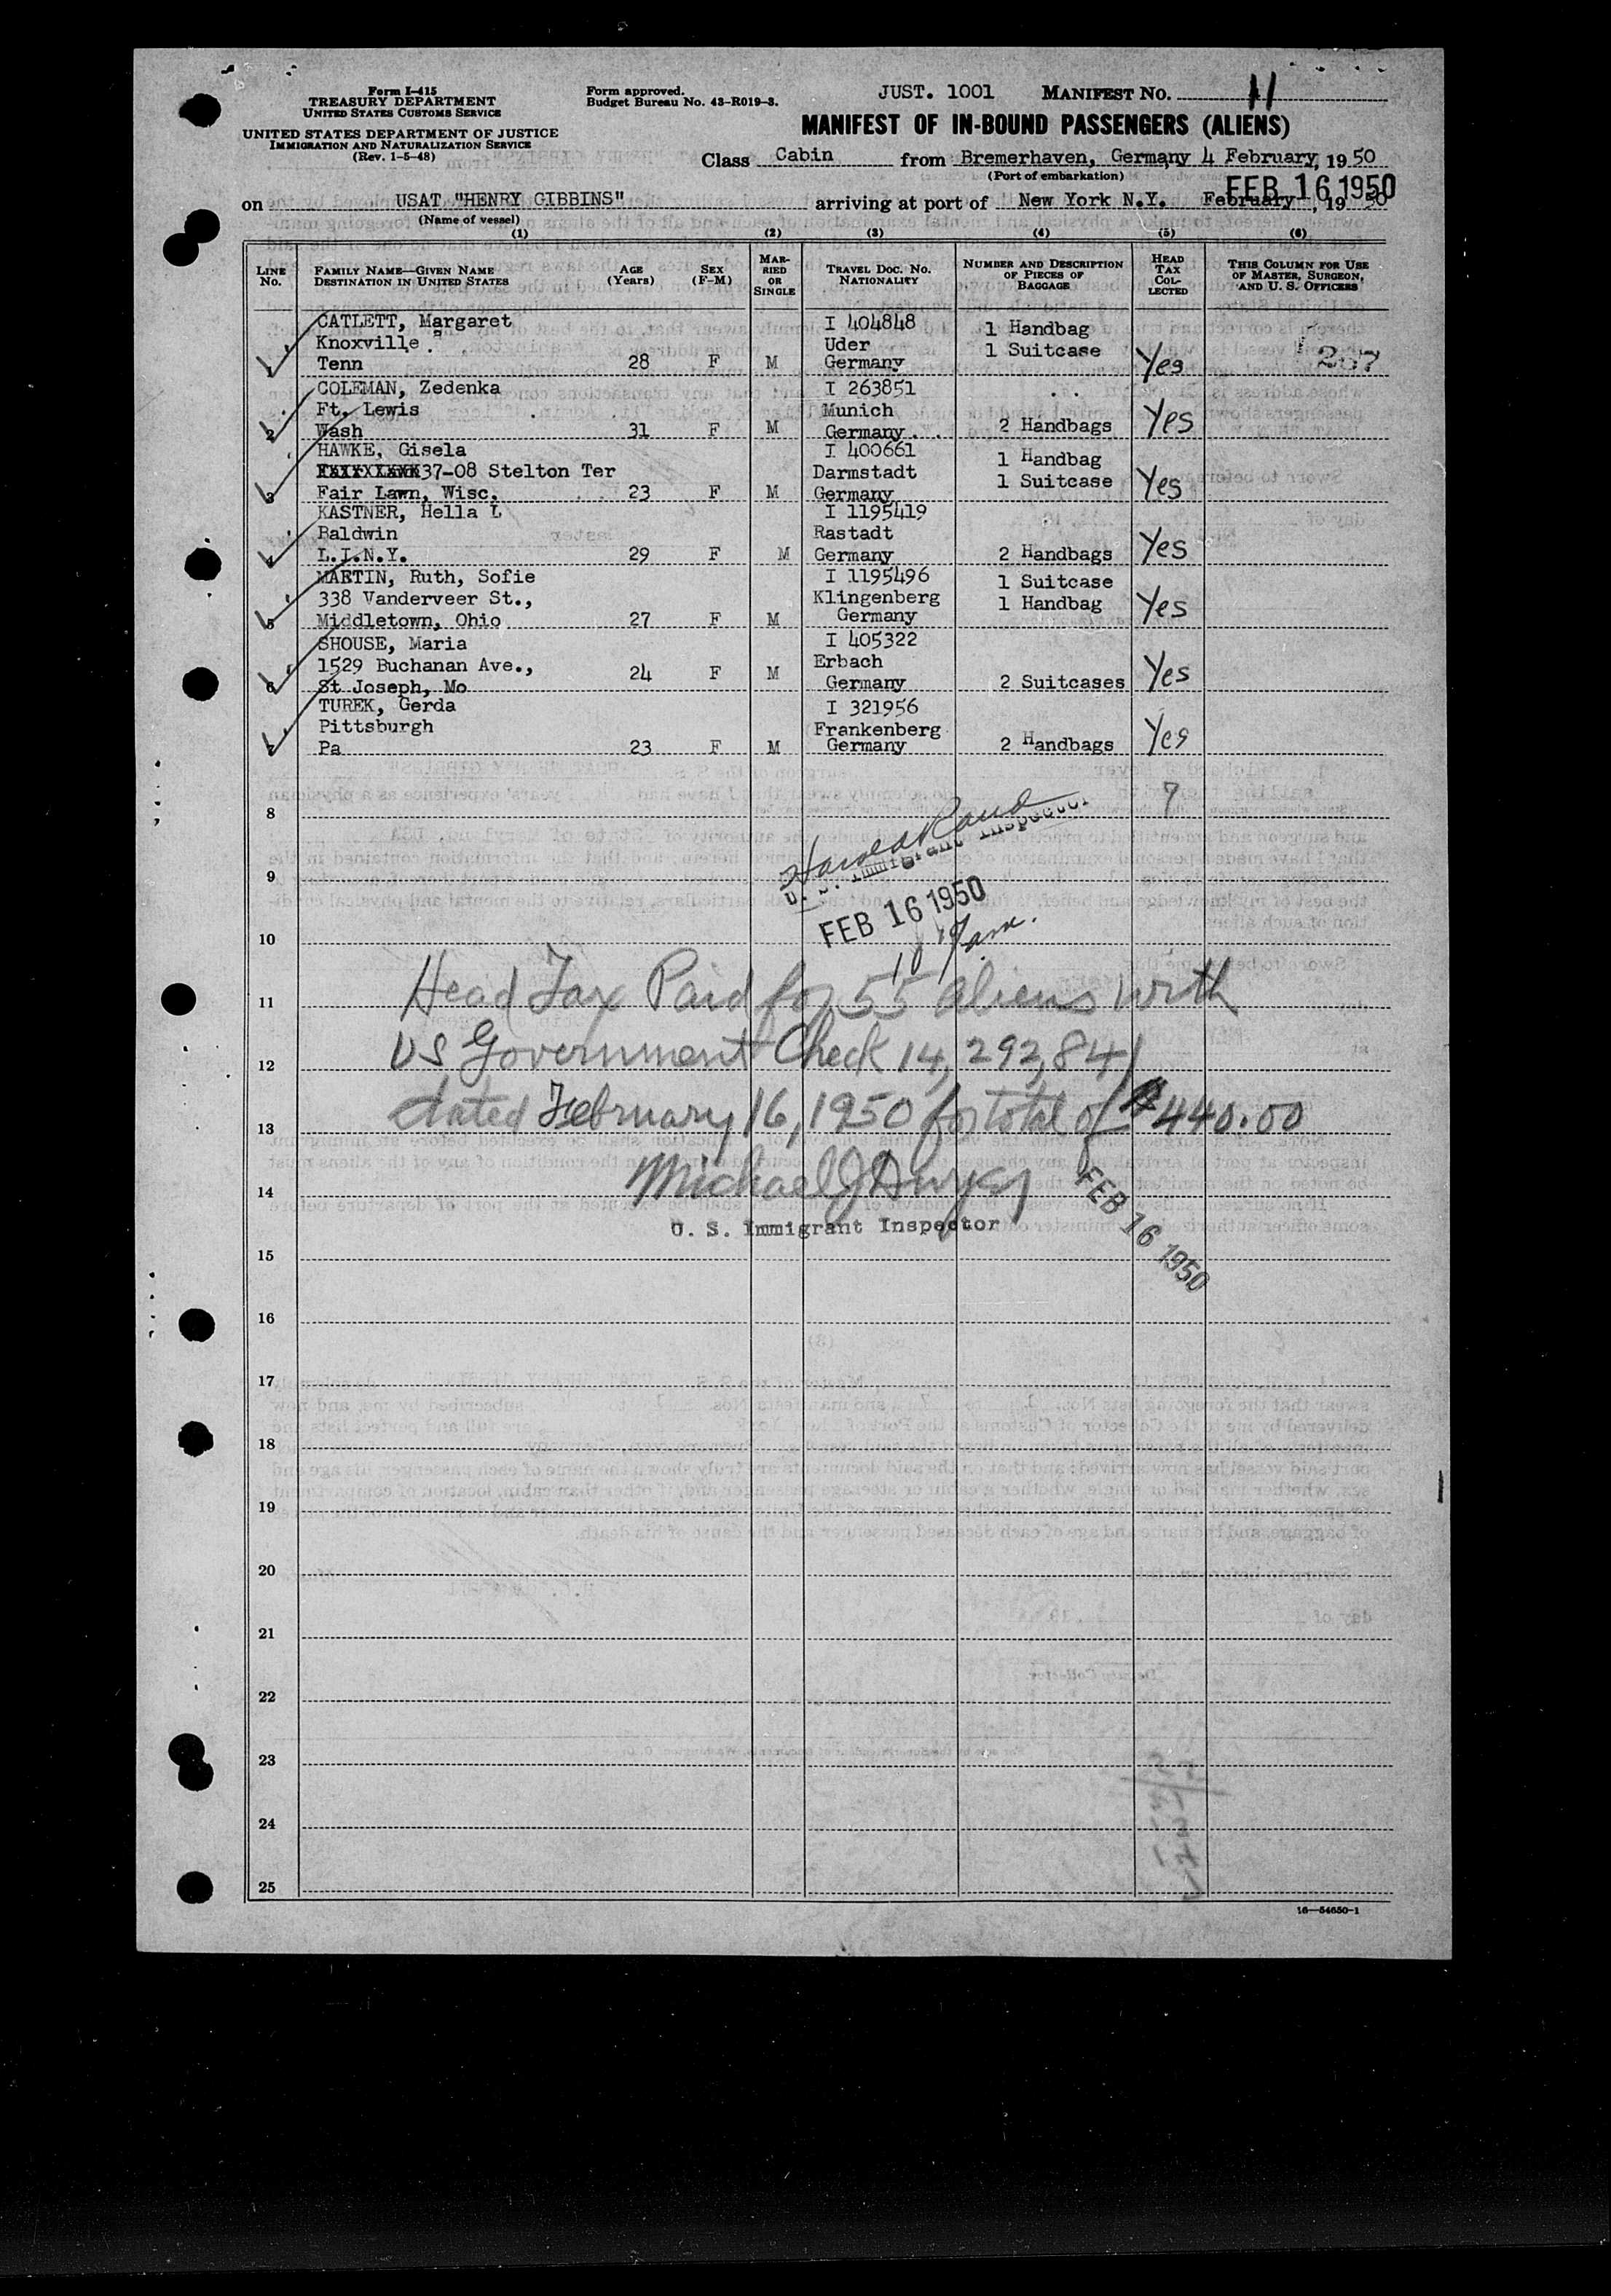 Form I-415
TREASURY DEPARTMENT
UNITED STATES CUSTOMS SERVICE
UNITED STATES DEPARTMENT OF JUSTICE
IMMIGRATION AND NATURALIZATION SERVICE
(Rev. 1-5-48)
Form approved.
Budget Bureau No. 43-R019-3.
JUST. 1001 MANIFEST NO. 11
MANIFEST OF IN-BOUND PASSENGERS (ALIENS)
Class Cabin from Bremerhaven, Germany 4 February, 1950
(Port of embarkation)
FEB 16 1950
on USAT "HENRY GIBBINS" arriving at port of New York N.Y. February, 1950
(Name of vessel)
(1) (2) (3) (4) (5) (6)
LINE NO.
FAMILY NAME—GIVEN NAME
DESTINATION IN UNITED STATES
AGE (YEARS)
SEX (F-M)
MAR-RIED OR SINGLE
TRAVEL DOC. NO. NATIONALITY
NUMBER AND DESCRIPTION OF PIECES OF BAGGAGE
HEAD TAX COL-LECTED
THIS COLUMN FOR USE OF MASTER, SURGEON, AND U. S. OFFICERS
CATLETT, Margaret I 404848 1 Handbag
Knoxville Uder 1 Suitcase
1 Tenn 28 F M Germany Yes 267
COLEMAN, Zedenka I 263851
Ft. Lewis Munich
2 Wash 31 F M Germany 2 Handbags Yes
HAWKE, Gisela I 400661 1 Handbag
37-08 Stelton Ter Darmstadt 1 Suitcase
3 Fair Lawn, Wisc. 23 F M Germany Yes
KASTNER, Hella L I 1195419
Baldwin Rastadt
4 L.I.N.Y. 29 F M Germany 2 Handbags Yes
MARTIN, Ruth, Sofie I 1195496 1 Suitcase
338 Vanderveer St., Klingenberg 1 Handbag
5 Middletown, Ohio 27 F M Germany Yes
SHOUSE, Maria I 405322
1529 Buchanan Ave., 24 F M Erbach
6 St Joseph, Mo Germany 2 Suitcases Yes
TUREK, Gerda I 321956
Pittsburgh Frankenberg
7 Pa 23 F M Germany 2 Handbags Yes
8 7
Harold Rand
U. S. Immigrant Inspector
9
FEB 16 1950
10
11 Head Tax Paid for 55 aliens with
12 US Government Check 14,292,841
13 dated February 16, 1950 for total of $440.00
14 Michael J Dwyer
FEB 16 1950
U. S. Immigrant Inspector
15
16
17
18
19
20
21
22
23
24
25
16—54650-1